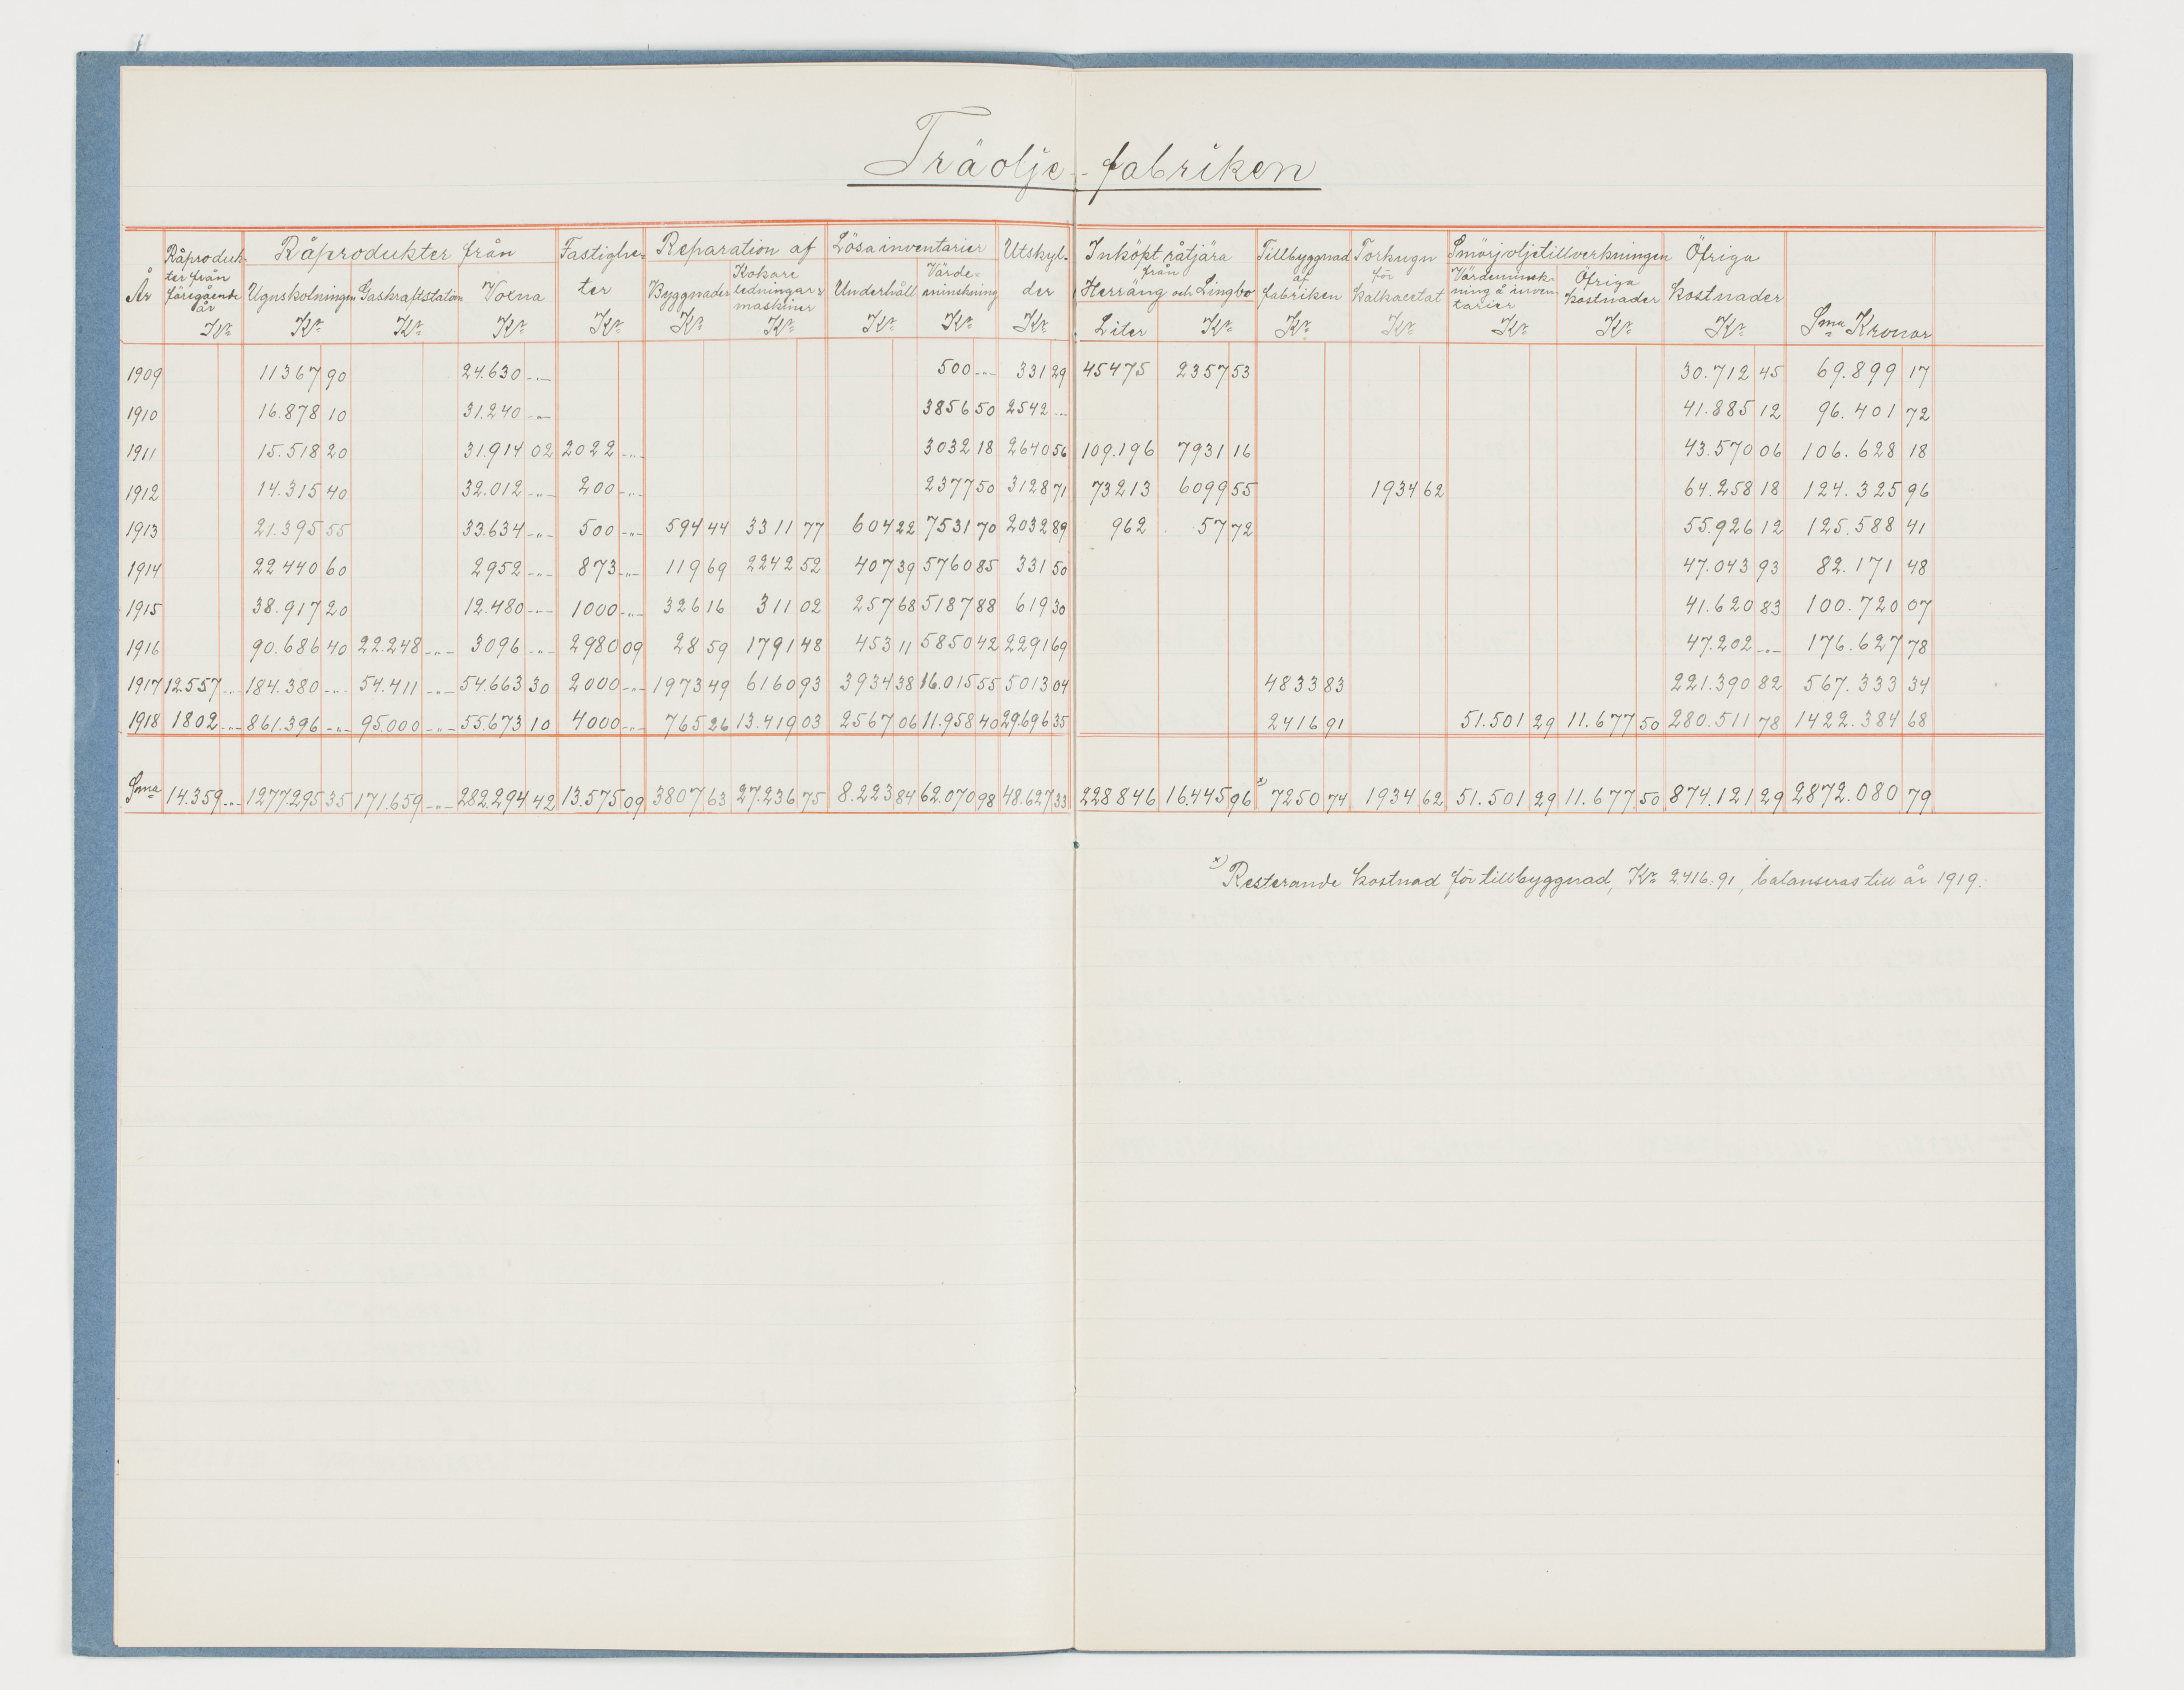 Träolje-fabriken
År Råproduk- ter från föregående år Kr Råprodukter från Ugnskolningen Kr Gaskraftstation Kr Voxna Kr Fastighe- ter Kr Reparation af Byggnader Kr Kokare ledningar & maskiner Kr Lösa inventarier Underhåll Kr Värde- minskning Kr Utskyl- der Kr Inköpt råtjära från Herräng och Lingbo Liter Kr Tillbyggnad af fabriken Kr Torkugn för Kalkacetat Kr Smörjoljetillverkningen Värdeminsk- ning å inven- tarier Kr Öfriga Kostnader Kr Öfriga Kostnader Kr Sma Kronor
1909 11367 90 24.630 -"- 500 -"- 331 29 45475 2357 53 30.712 45 69.899 17
1910 16.878 10 31.240 -"- 3856 50 2542 -"- 41.885 12 96.401 72
1911 15.518 20 31.914 02 2022 -"- 3032 18 2640 56 109.196 7931 16 43.570 06 106.628 18
1912 14.315 40 32.012 -"- 200 -"- 2377 50 3128 71 73213 6099 55 1934 62 64.258 18 124.325 96
1913 21.395 55 33.634 -"- 500 -"- 594 44 3311 77 604 22 7531 70 2032 89 962 57 72 55.926 12 125.588 41
1914 22440 60 2952 -"- 873 -"- 119 69 2242 52 407 39 5760 85 331 50 47.043 93 82.171 48
1915 38.917 20 12.480 -"- 1000 -"- 326 16 311 02 257 68 5187 88 619 30 41.620 83 100.720 07
1916 90.686 40 22.248 -"- 3096 -"- 2980 09 28 59 1791 48 453 11 5850 42 2291 69 47.202 -"- 176.627 78
1917 12.557 -"- 184.380 -"- 54.411 -"- 54.663 30 2000 -"- 1973 49 6160 93 3934 38 16.015 55 5013 04 4833 83 221.390 82 567.333 34
1918 1802 -"- 861.396 -"- 95.000 -"- 55.673 10 4000 -"- 765 26 13.419 03 2567 06 11.958 40 29.696 35 2416 91 51.501 29 11.677 50 280.511 78 1422.384 68
Sma 14.359 -"- 1277.295 35 171.659 -"- 282.294 42 13.575 09 3807 63 27.236 75 8.223 84 62.070 98 48.627 33 228846 16.445 96 x) 7250 74 1934 62 51.501 29 11.677 50 874.121 29 2872.080 79
x) Resterande kostnad för tillbyggnad, Kr 2416:91, balanseras till år 1919.